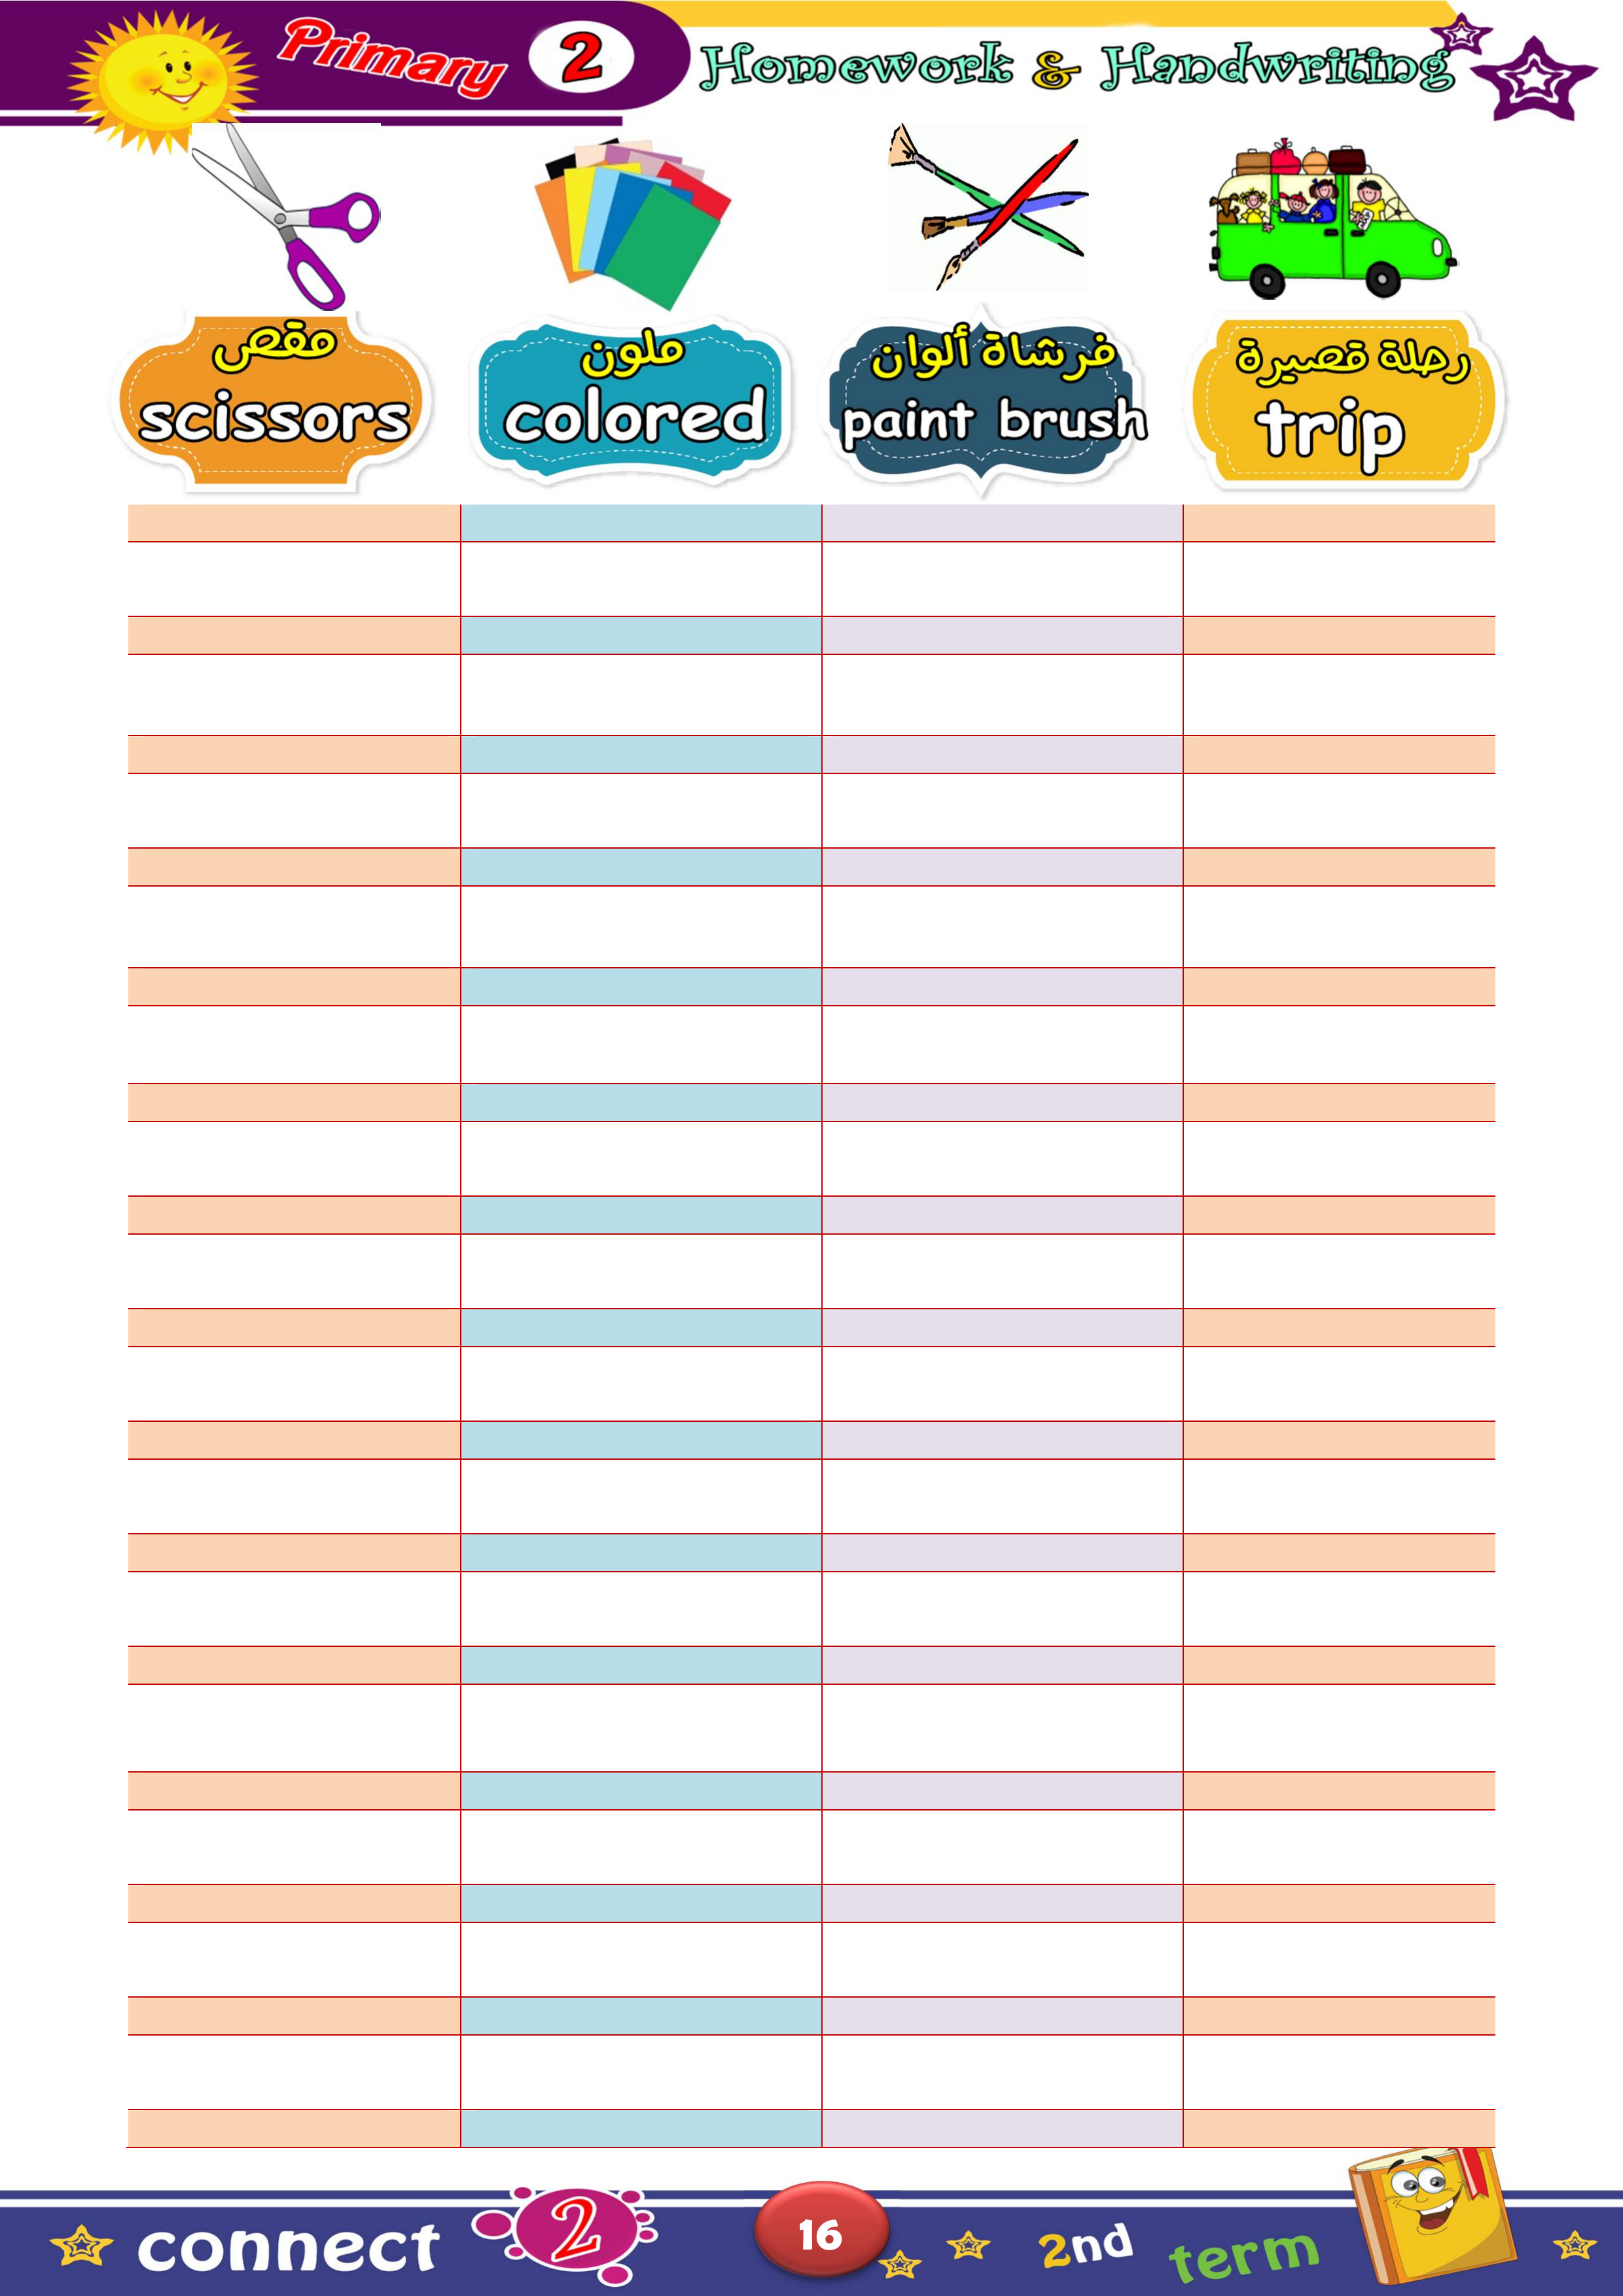 Primary 2 Homework & Handwriting
مقص
scissors
ملون
colored
فرشاة ألوان
paint brush
رحلة قصيرة
trip
connect 2 16 2nd term